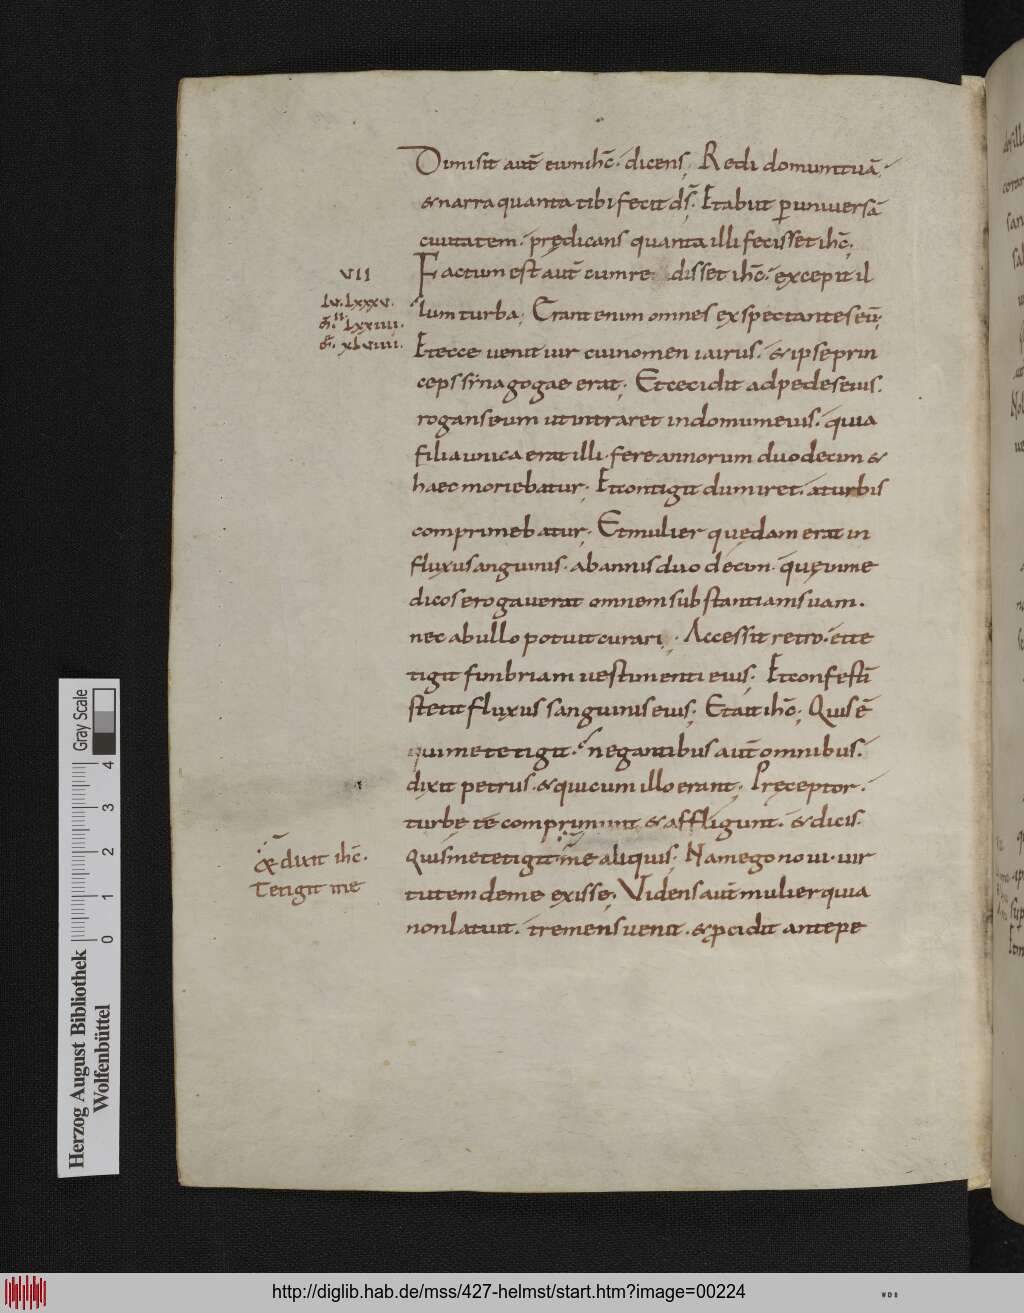 Dimisit aut̄ eum ihc̄. dicens; Redi domum tuā.
& narra quanta tibi fecit ds̄. Et abiit ꝑ uniuersā
ciuitatem. prędicans quanta illi fecisset ihc̄;
VII
Factum est aut̄ cum re disset ihc̄. excepit il
lum turba; Erant enim omnes expectantes eū;
LU. LXXXV.
LXXIIII.
XLVIIII.
Et ecce uenit uir cui nomen iairus. & ipse prin
ceps synagogae erat; Et cecidit ad pedes eius.
rogans eum ut intraret in domum eius. quia
filia unica erat illi. fere annorum duodecim &
haec moriebatur; Et contigit dum iret. a turbis
comprimebatur; Et mulier quędam erat in
fluxu sanguinis. ab annis duodecim. quę in me
dicos erogauerat omnem substantiam suam.
nec ab ullo potuit curari; Accessit retro. et te
tigit fimbriam uestimenti eius; Et confestī
stetit fluxus sanguinis eius; Et ait ihc̄; Quis ē
qui me tetigit. negantibus aut̄ omnibus.
dixit petrus. & qui cum illo erant; Pręceptor.
turbę te comprimunt & affligunt. & dicis.
& dixit ihc̄.
Tetigit me
Quis me tetigit. me aliquis; Nam ego noui. uir
tutem de me exisse; Videns aut̄ mulier quia
non latuit. tremens uenit. & ꝓcidit ante pe
Gray Scale
0 1 2 3 4
Herzog August Bibliothek
Wolfenbüttel
http://diglib.hab.de/mss/427-helmst/start.htm?image=00224